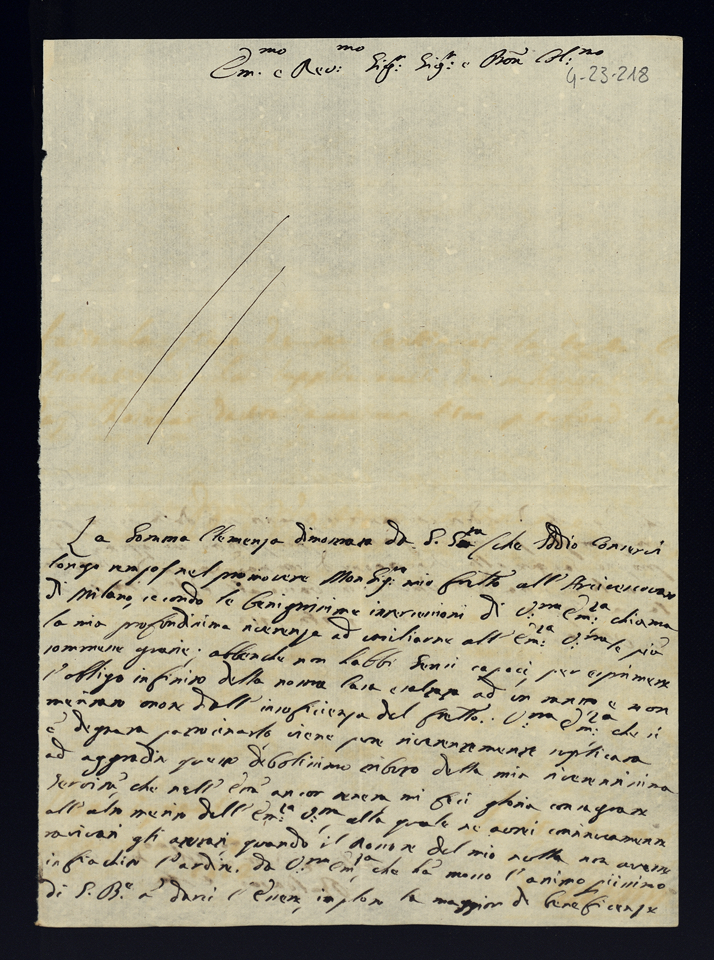 Em.mo e Rev:mo Sig.r Sig.r e Pron Col:mo
4-23-218
La somma Clemenza dimostrata da S. S.ta (che Iddio Conservi
longo tempo) nel promovere Mons.re mio frat.lo all'Arcivescovato
di Milano, secondo le benignissime intercessioni di V.ra Em.za chiama
la mia profondissima riverenza ad umiliarne all' Em.za V.ra le più
sommesse grazie; abbenche non habbi sensi capaci per esprimere
l'obligo infinito della nostra Casa esaltata ad un tanto e non
meritato onore dall' insuficienza del frat.lo. V.ra Em.za che si
è degnata patrocinarlo viene pure riverentemente suplicata
ad aggradir questo debolissimo tributo della mia riverentissima
servitù, che nell' età ancor tenera mi feci gloria consagrare
all'alto merito dell' Em.za V.ra alla quale ne avrei continuamente
ravivati gli quando il del mio nulla non avesse
infiachito l'ardire. da V.ra Em.za che ha mosso l'animo piissimo
di S. B.e a darci l'essere, imploro la maggior di beneficenze